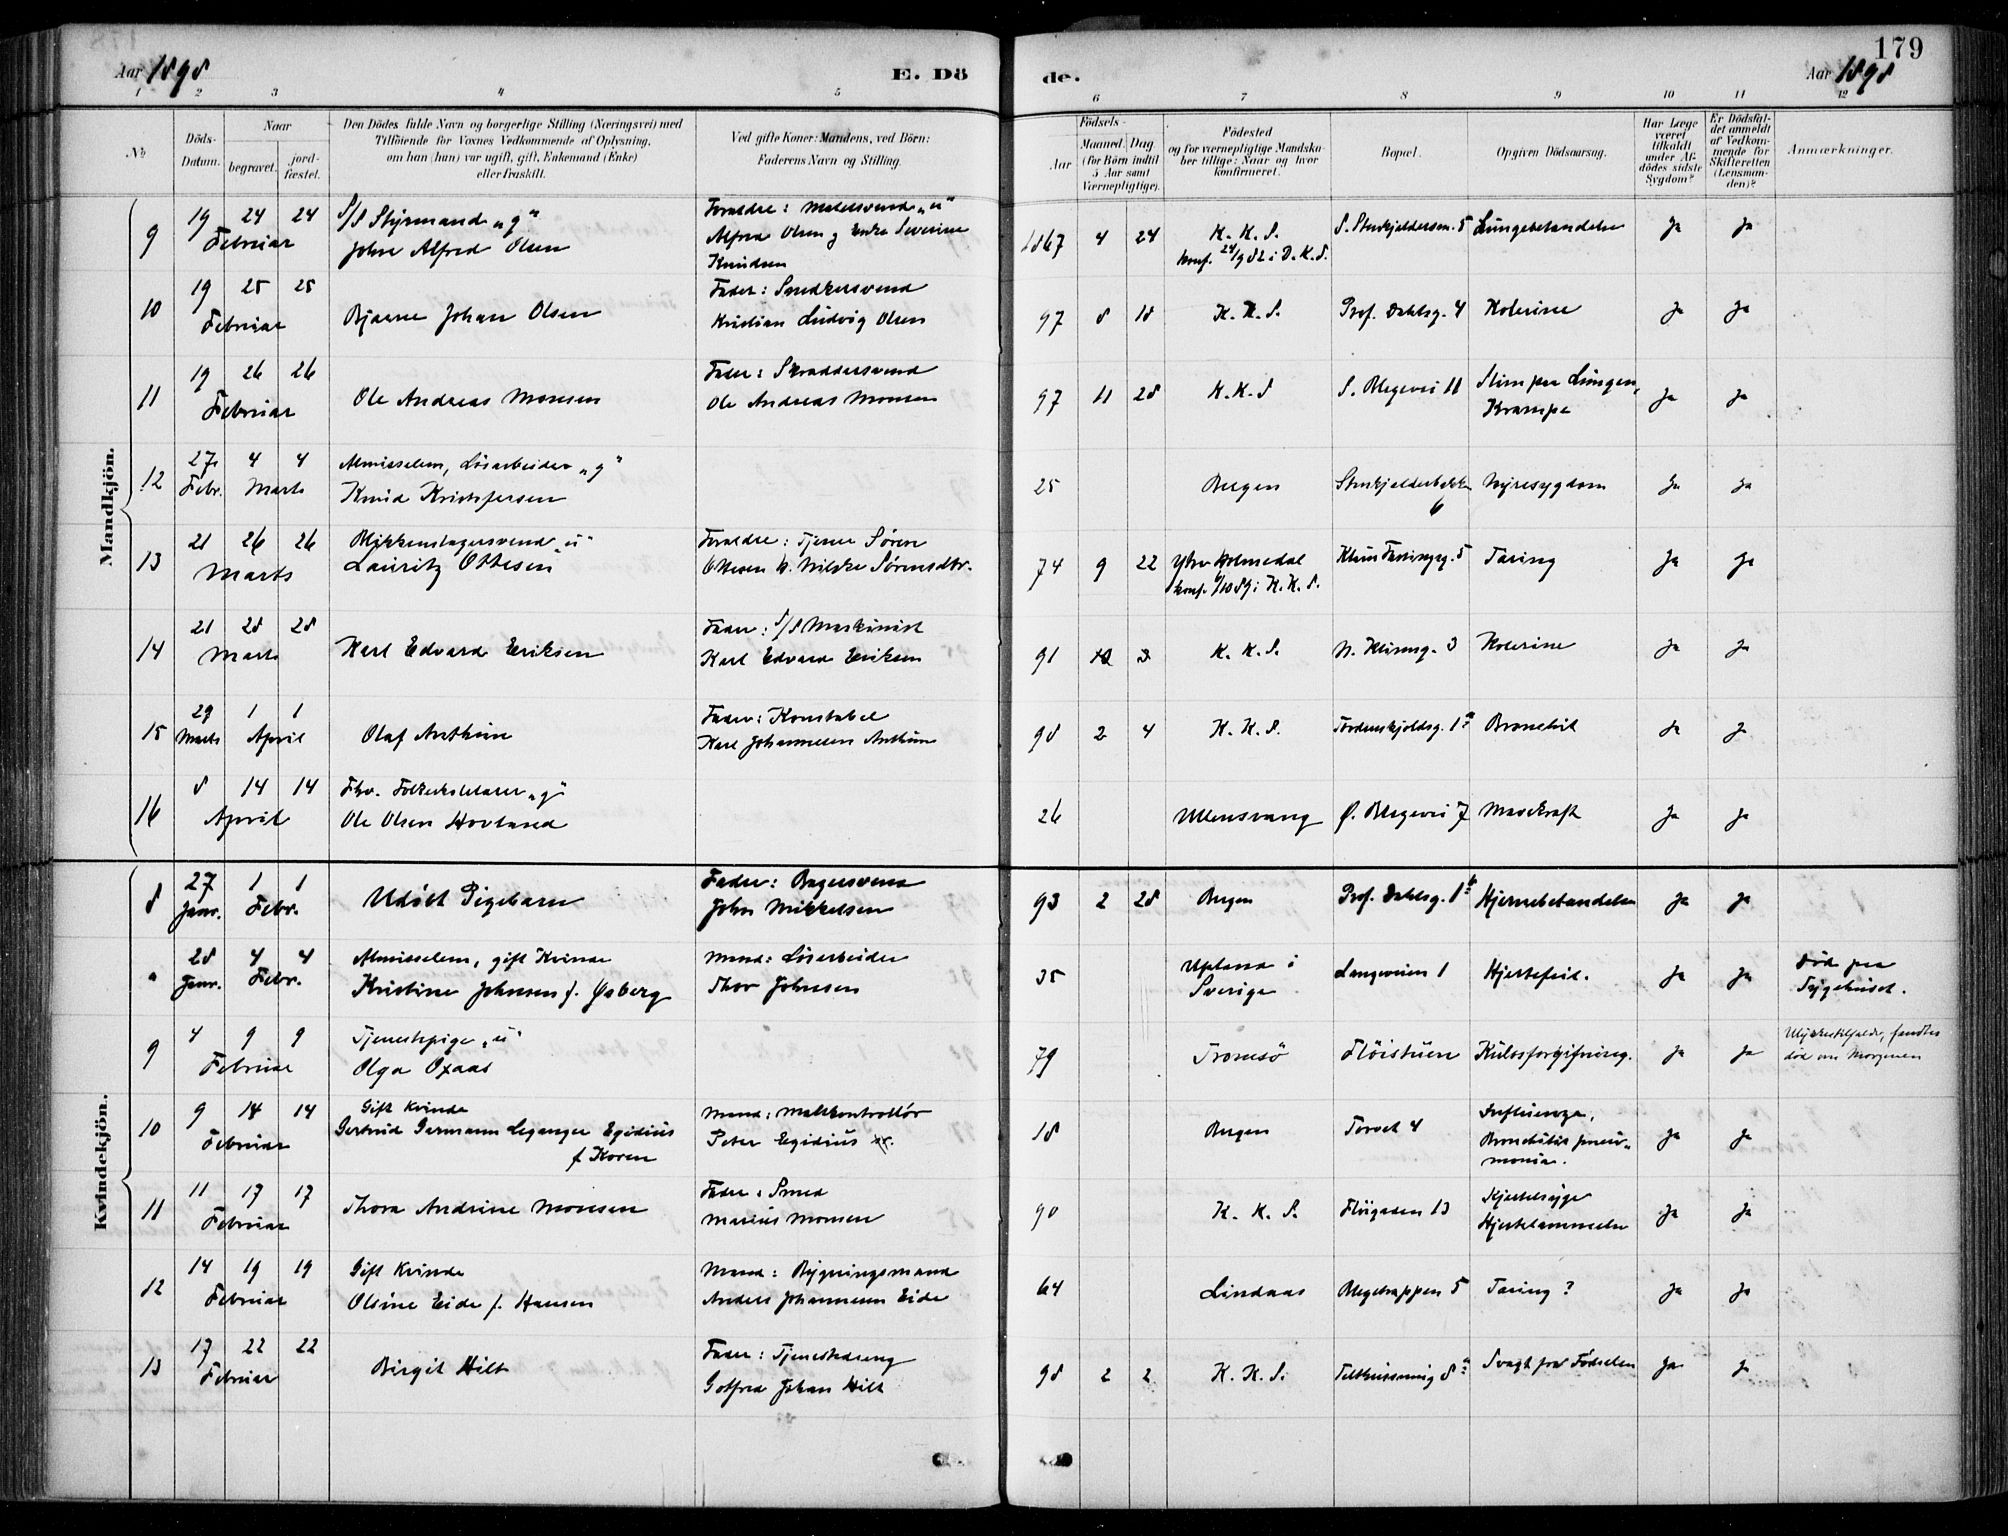 Aar 1898
E. Dö
de.
179
Aar 1898
1 2 3 4 5 6 7 8 9 10 11 12
No
Döds-Datum.
Naar
begravet.
jord-fæstet.
Den Dödes fulde Navn og borgerlige Stilling (Næringsvei) med
Tilföiende for Voxnes Vedkommende af Oplysning,
om han (hun) var ugift, gift, Enkemand (Enke)
eller fraskilt.
Ved gifte Koner: Mandens, ved Börn:
Faderens Navn og Stilling.
Födsels-
Aar
Maaned. Dag
(for Börn indtil
5 Aar samt
Værnepligtige).
Födested
og for værnepligtige Mandska-
ber tillige: Naar og hvor
konfirmeret.
Bopæl.
Opgiven Dödsaarsag.
Har Læge
været
tilkaldt
under Af-
dödes sidste
Sygdom?
Er Dödsfal-
det anmeldt
af Vedkom-
mende for
Skifteretten
(Lensman-
den)?
Anmærkninger.
Mandkjön.
9 19 24 24 Februar
S/S Styrmand "g"
Johan Alfred Olsen
Forældre: Malersvend "u"
Alfred Olsen g Severine
Knudsen
1867 4 24
K. K. S.
konf. 24/9 82 i D. K. S.
Lungebetændelse
Ja Ja
10 19 25 25 Februar
Bjarne Johan Olsen
Fader: Snedkersvend
Kristian Ludvig Olsen
97 8 18 K. K. S. Prof. Dahlsg. 4 Kolerine Ja Ja
11 19 26 26 Februar
Ole Andreas Monsen
Fader: Skræddersvend
Ole Andreas Monsen
97 11 28 K. K. S S. Blegevei 11
Slim paa Lungen,
Krampe
Ja Ja
12 27 Febr. 4 4 Marts
Almisselem, Løsarbeider "g"
Knud Kristofersen
25 Bergen Stenkjelderbakken
6
Nyresygdom Ja Ja
13 21 26 26 Marts
Blikkenslagersvend "u"
Lauritz Ottesen
Forældre: Tjener Søren
Ottesen Sørensdtr.
74 9 22 Ytre Holmedal
konf. 6/10 89 i K. K. S.
5 Tæring Ja Ja
14 21 28 28 Marts
Karl Edvard Eriksen
Fader: S/S Maskinist
Karl Edvard Eriksen
91 10 3 K. K. S. 3 Kolerine Ja Ja
15 29 Marts 1 1 April
Olaf Anthun
Fader: Konstabel
Karl Johannesen Anthun
98 2 4 K. K. S. Tordenskjoldsg. 1a Bronchit Ja Ja
16 8 14 14 April
Fhv. Folkeskolelærer "g"
Ole Olsen Hovland
26 Ullensvang Ø. Blegevei 7 Mavekræft Ja Ja
Kvindekjön.
8 27 Janr. 1 1 Febr.
Udøbt Pigebarn
Fader: Bagersvend
John Mikkelsen
93 2 28 Bergen Prof. Dahlsg. 1b Hjernebetændelse Ja Ja
a 28 Janr. 4 4 Febr.
Almisselem, gift Kvinde
Kristine Johnsen f. Øsberg
Mand: Løsarbeider
Thor Johnsen
35 Upland i
Sverige
Langeveien 1 Hjertefeil. Ja Ja
Død paa
Sygehuset.
9 4 9 9 Februar
Tjenestepige "u"
Olga Oxaas
79 Tromsö Flöistuen Kulosforgiftning. Ja Ja
Ulykkestilfælde, fandtes
død om Morgenen
10 9 14 14 Februar
Gift Kvinde
Gertrud Germann Leganger Egidius
f. Koren
Mand: Maltkontrollør
Peter Egidius
18 Bergen Torvet 4
Influenza,
Bronchitis pneu-
monia.
Ja Ja
11 11 17 17 Februar
Thora Andrine Monsen
Fader: Smed
Marius Monsen
90 K. K. S. Fløigaden 13
Kjertelsyge
Hjertelammelse
Ja Ja
12 14 19 19 Februar
Gift Kvinde
Olsine Eide f. Hansen
Mand: Bygningsmand
Anders Johannesen Eide
64 Lindaas Blegetrappen 5 Tæring? Ja Ja
13 17 22 22 Februar
Birgit Hilt
Fader: Tjenestedreng
Gotfred Johan Hilt
98 2 2 K. K. S. Telthussmug 8a Svagt fra Fødselen Ja Ja